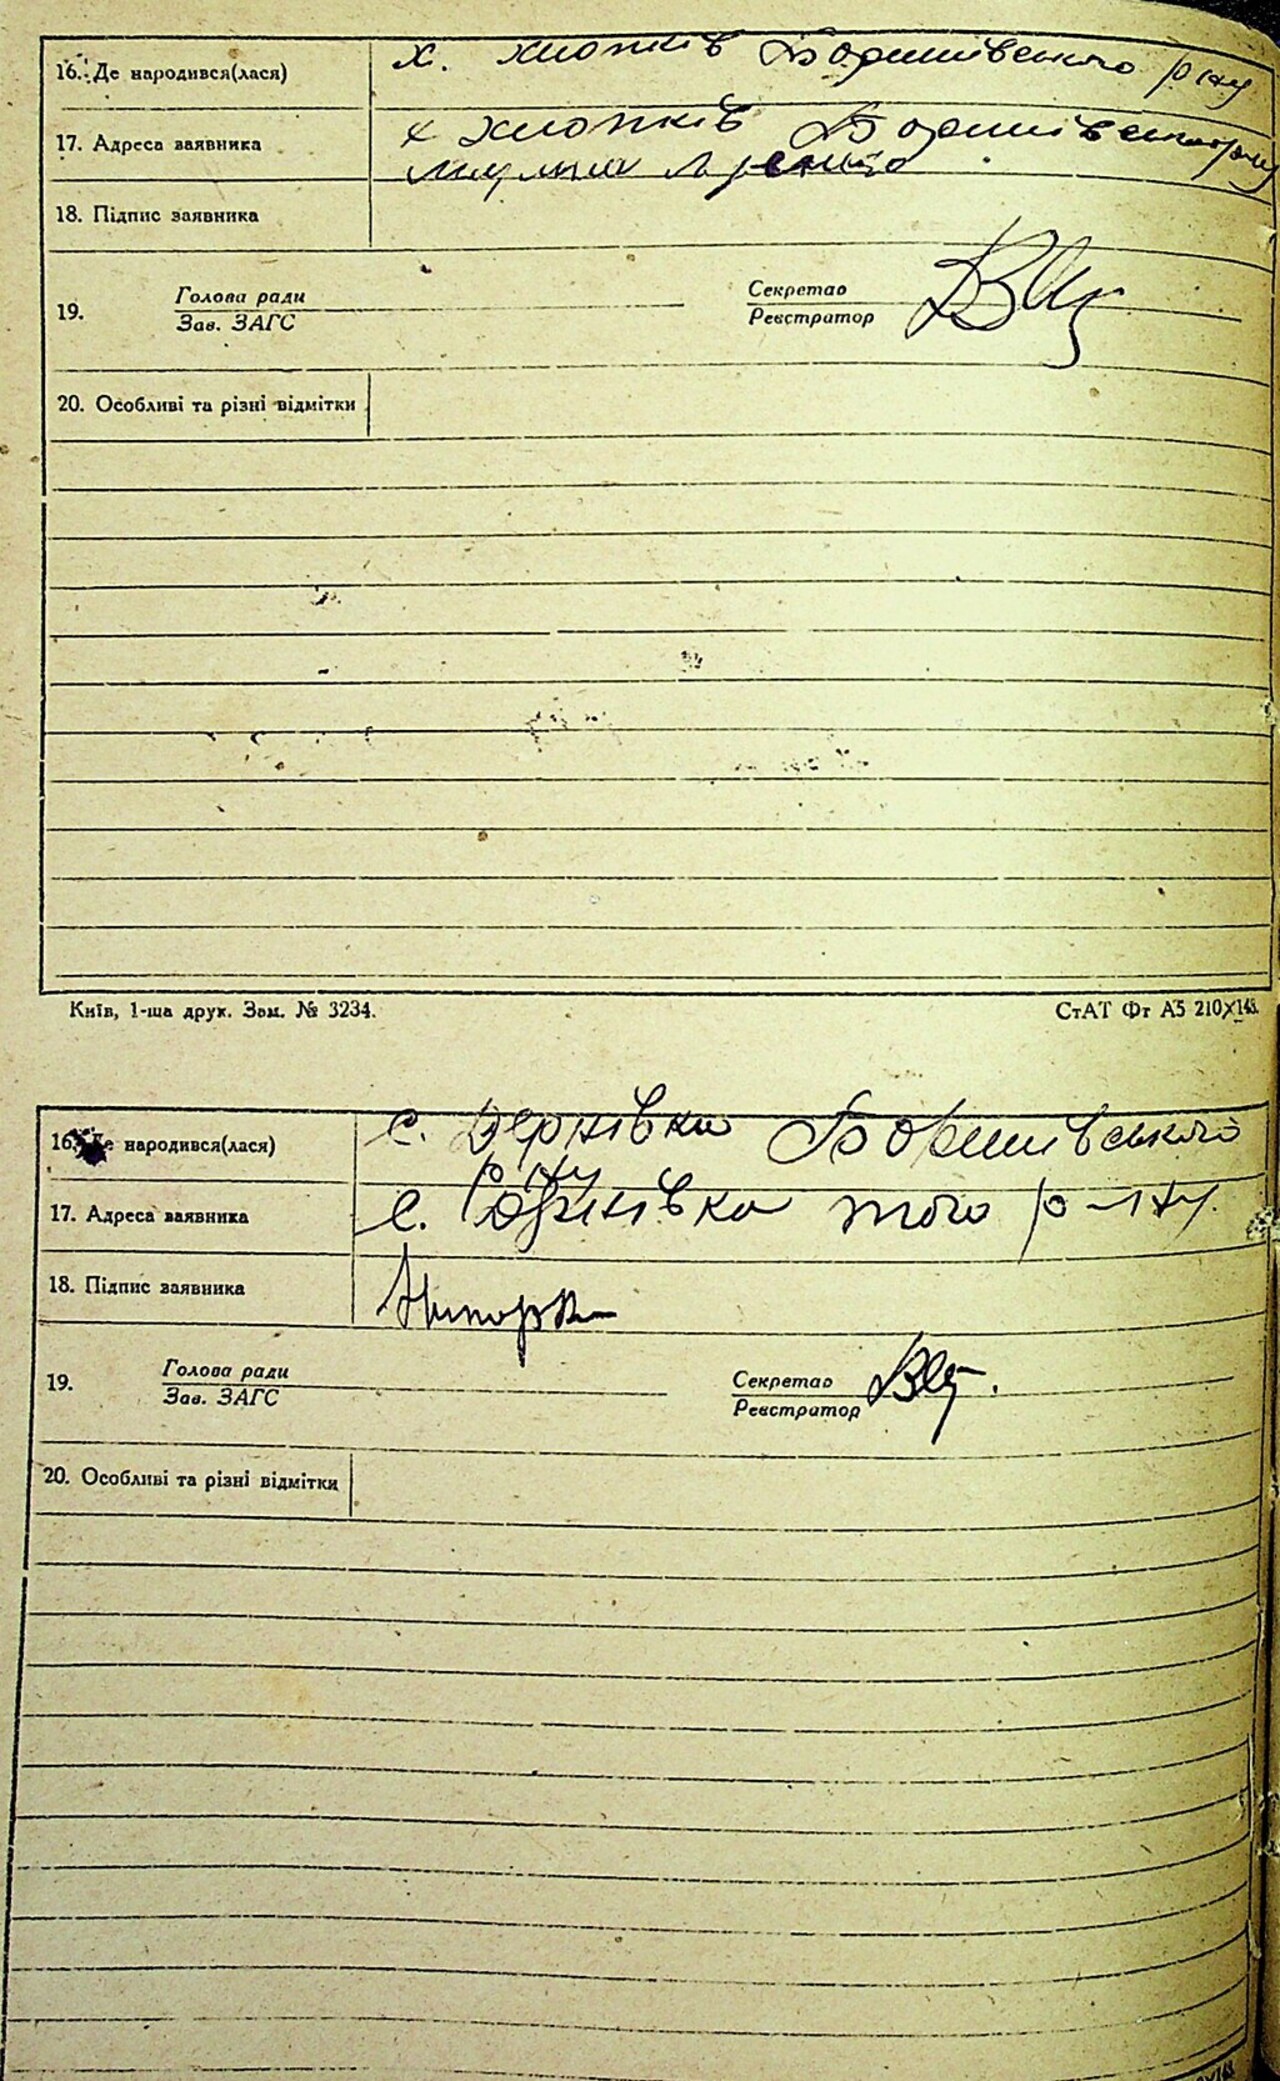 16. Де народився(лася) х. Хлопків Баришівського р-ну
17. Адреса заявника х Хлопків Баришівського р-ну
18. Підпис заявника
19. Голова ради Секретар
Зав. ЗАГС Реєстратор
20. Особливі та різні відмітки
Київ, 1-ша друк. Зам. № 3234. СтАТ Фт А5 210X148.
16. Де народився(лася) с. Дернівка Баришівського
р-ну
17. Адреса заявника с. того р-ну.
18. Підпис заявника
19. Голова ради Секретар
Зав. ЗАГС Реєстратор
20. Особливі та різні відмітки